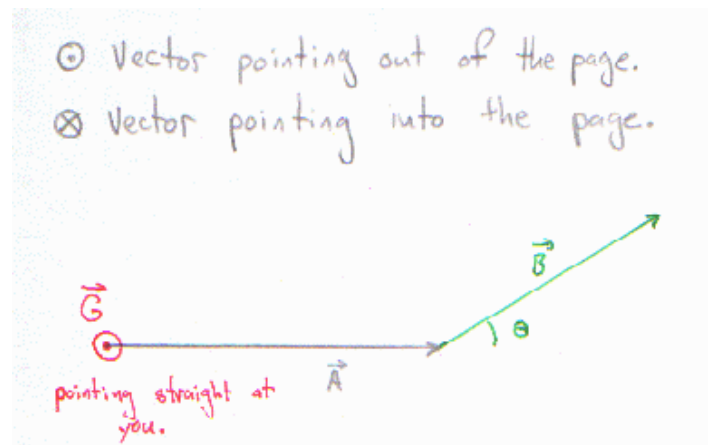 ⊙ Vector pointing out of the page.
⊗ Vector pointing into the page.
B
G
θ
A
pointing straight at
you.